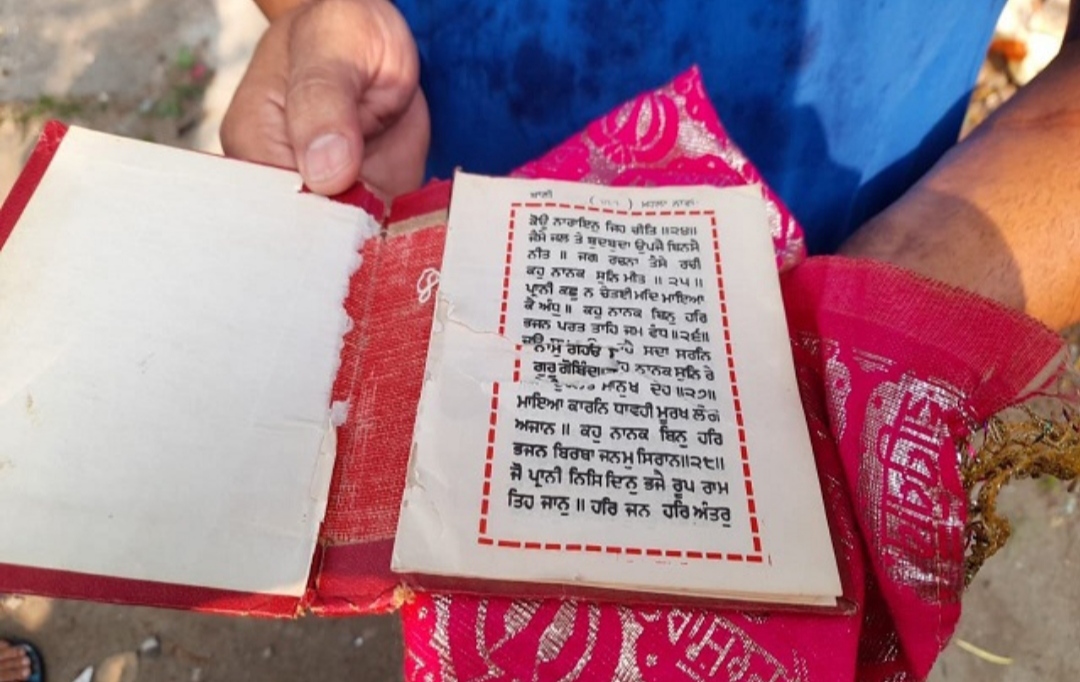 ਬਾਣੀ ( ) ਮਹਲਾ
ਕੋਊ ਨਾਰਾਇਨੁ ਜਿਹ ਚੀਤਿ ॥੨੪॥
ਜੈਸੇ ਜਲ ਤੇ ਬੁਦਬੁਦਾ ਉਪਜੈ ਬਿਨਸੈ
ਨੀਤ ॥ ਜਗ ਰਚਨਾ ਤੈਸੇ ਰਚੀ
ਕਹੁ ਨਾਨਕ ਸੁਨਿ ਮੀਤ ॥ ੨੫ ॥
ਪ੍ਰਾਨੀ ਕਛੂ ਨ ਚੇਤਈ ਮਦਿ ਮਾਇਆ
ਕੈ ਅੰਧੁ ॥ ਕਹੁ ਨਾਨਕ ਬਿਨੁ ਹਰਿ
ਭਜਨ ਪਰਤ ਤਾਹਿ ਜਮ ਫੰਧ ॥੨੬॥
ਸਦਾ ਸਰਨਿ
ਨਾਮੁ
ਨਾਨਕ ਸੁਨਿ ਰੇ
ਗੁਰੂ ਗੋਬਿੰਦ
ਮਾਨੁਖ ਦੇਹ ॥੨੭॥
ਮਾਇਆ ਕਾਰਨਿ ਧਾਵਹੀ ਮੂਰਖ ਲੋਗ
ਅਜਾਨ ॥ ਕਹੁ ਨਾਨਕ ਬਿਨੁ ਹਰਿ
ਭਜਨ ਬਿਰਥਾ ਜਨਮੁ ਸਿਰਾਨ॥੨੮॥
ਜੋ ਪ੍ਰਾਨੀ ਨਿਸਿ ਦਿਨੁ ਭਜੇ ਰੂਪ ਰਾਮ
ਤਿਹ ਜਾਨੁ ॥ ਹਰਿ ਜਨ ਹਰਿ ਅੰਤਰੁ